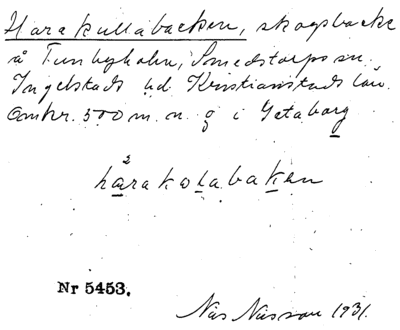 Harakullabacken, skogsbacke
å Tunbyholm, Smedstorps sn.
Ingelstads hd Kristianstads län.
Omkr. 500 m. n. g i Getaborg
2
hårakolabakan
Nr 5453.
Nils Nilsson 1931.